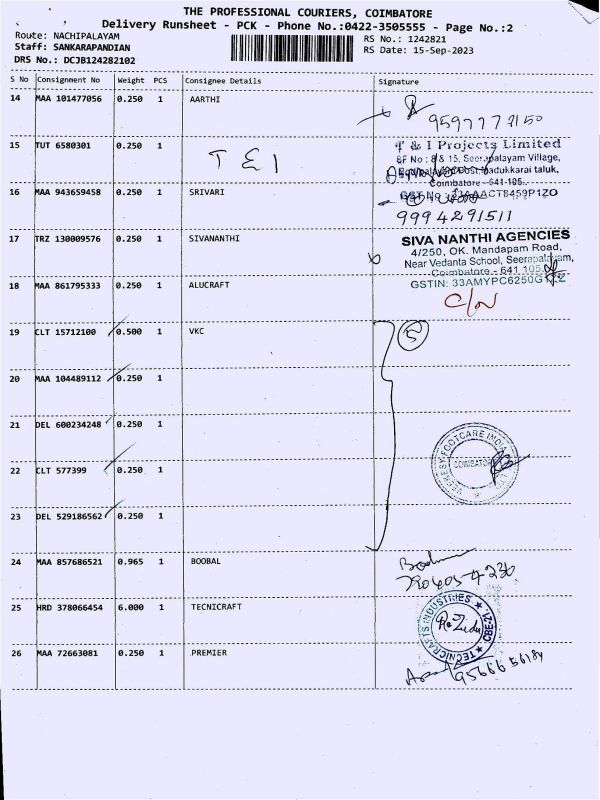 THE PROFESSIONAL COURIERS, COIMBATORE
Delivery Runsheet - PCK - Phone No.:0422-3505555 - Page No.:2
Route: NACHIPALAYAM RS No.: 1242821
Staff: SANKARAPANDIAN RS Date: 15-Sep-2023
DRS No.: DCJB124282102
S No Consignment No Weight PCS Consignee Details Signature
14 MAA 101477056 0.250 1 AARTHI
9597777150
15 TUT 6580301 0.250 1 T & I Projects Limited
TEI SF No : 8 & 15, Seerapalayam Village,
Madukkarai taluk,
Coimbatore - 641 105.
16 MAA 943659458 0.250 1 SRIVARI
GST No
9994291511
17 TRZ 130009576 0.250 1 SIVANANTHI SIVA NANTHI AGENCIES
4/250, OK. Mandapam Road,
Near Vedanta School, Seerapalayam,
Coimbatore - 641 105.
18 MAA 861795333 0.250 1 ALUCRAFT GSTIN: 33AMYPC6250G
19 CLT 15712100 0.500 1 VKC 5
20 MAA 104489112 0.250 1
21 DEL 600234248 0.250 1
22 CLT 577399 0.250 1
COIMBATORE
23 DEL 529186562 0.250 1
24 MAA 857686521 0.965 1 BOOBAL
25 HRD 378066454 6.000 1 TECNICRAFT
TECNICRAFTS INDUSTRIES CBE-21
26 MAA 72663081 0.250 1 PREMIER